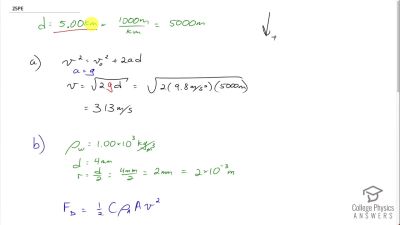 25PE
d = 5.00km × 1000m/km = 5000m
+
a) v² = v₀² + 2ad
a = g
v = √2gd = √2(9.8m/s²)(5000m)
= 313 m/s
b) ρw = 1.00×10³ kg/m³
d = 4mm
r = d/2 = 4mm/2 = 2mm = 2×10⁻³ m
F_D = ½ C ρ A v²
College Physics
ANSWERS